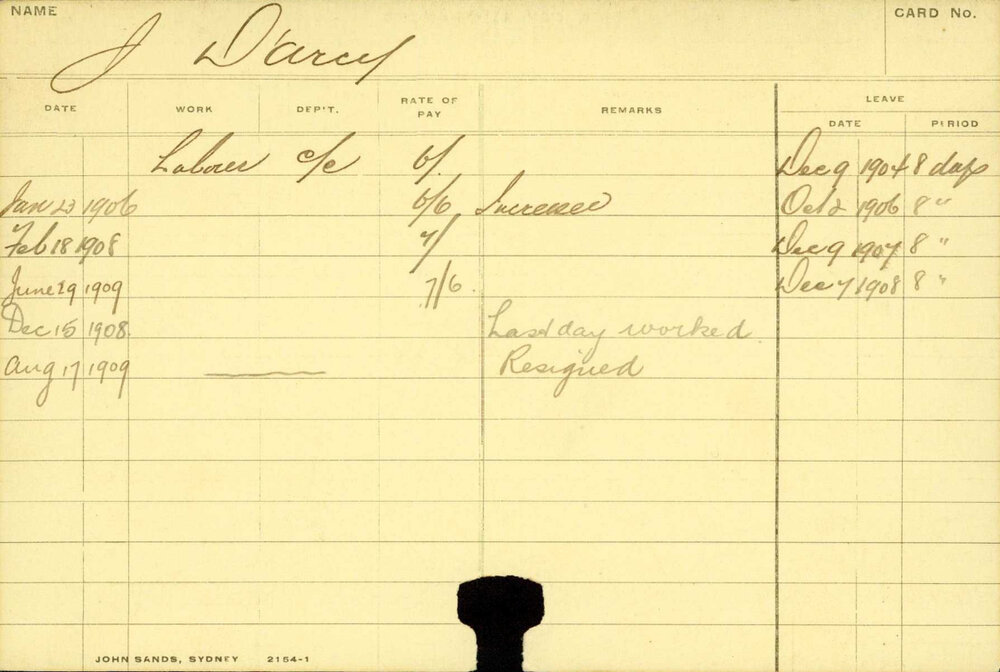 NAME CARD No.
J D'arcy
DATE WORK DEP'T. RATE OF PAY REMARKS LEAVE
DATE PERIOD
Labourer c/c 6/. Dec 9 1904 8 days
Jan 23 1906 6/6 Increase Oct 2 1906 8 "
Feb 18 1908 7/ Dec 9 1907 8 "
June 29 1909 7/6. Dec 7 1908 8 "
Dec 15 1908. Last day worked
Aug 17 1909 Resigned
JOHN SANDS, SYDNEY 2154-1